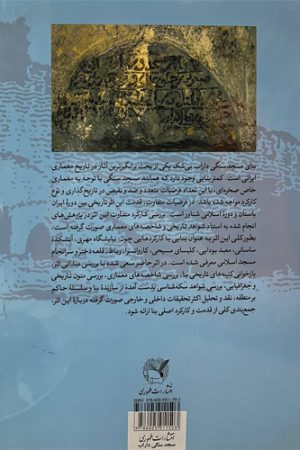 بنای مسجد سنگی داراب بی‌شک یکی از بحث برانگیزترین آثار در تاریخ معماری
ایرانی است. کمتر بنایی وجود دارد که همانند مسجد سنگی با توجه به معماری
خاص صخره‌ای، با این تعداد فرضیات متعدد و ضد و نقیض در تاریخ‌گذاری و نوع
کارکرد مواجه شده باشد. در فرضیات متفاوت، قدمت این اثر تاریخی بین دورۀ ایران
باستان و دورۀ اسلامی شناور است. بررسی کارکرد متفاوت این اثر در پژوهش‌های
انجام شده به استناد شواهد تاریخی و شاخصه‌های معماری صورت گرفته است،
بطورکلی این اثر به عنوان بنایی با کارکردهایی چون: نیایشگاه مهری، آتشکدۀ
ساسانی، معبد بودایی، کلیسای مسیحی، کاروانسرا، رباط، قلعه دختر و سرانجام
مسجد اسلامی معرفی شده است. در اثر حاضر سعی شده با بررسی میدانی اثر،
بازخوانی کتیبه‌های تاریخی بنا، بررسی شاخصه‌های معماری، بررسی متون تاریخی
و جغرافیایی، بررسی شواهد سکه‌شناسی بدست آمده از سازندۀ بنا و سلسله حاکم
بر منطقه، نقد و تحلیل اکثر تحقیقات داخلی و خارجی صورت گرفته دربارۀ این اثر،
جمع‌بندی کلی از قدمت و کارکرد اصلی بنا ارائه شود.
انتشارات طهوری
انتشارات طهوری
مسجد سنگی داراب